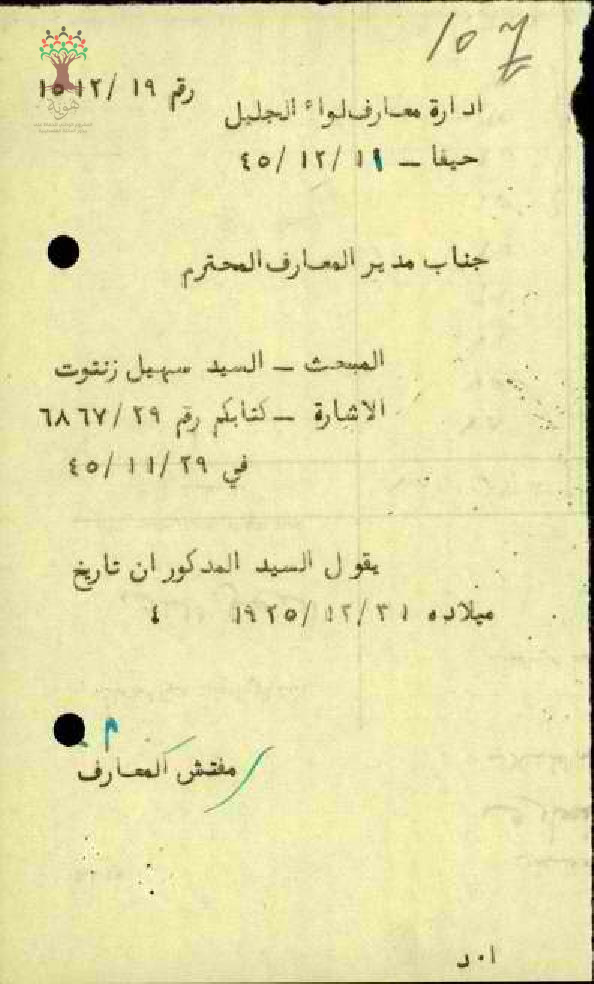 ١٥٦
رقم ١٩ /١٥١٢
ادارة معارف لواء الجليل
حيفا – ١٩ /١٢ /٤٥
جناب مدير المعارف المحترم
المبحث – السيد سهيل زنتوت
الاشارة – كتابكم رقم ٢٩/ ٦٨٦٧
في ٢٩ /١١ /٤٥
يقول السيد المدكور ان تاريخ
ميلاده ٣١ /١٢ /١٩٢٥
م
مفتش المعارف
ا٠د
هوية